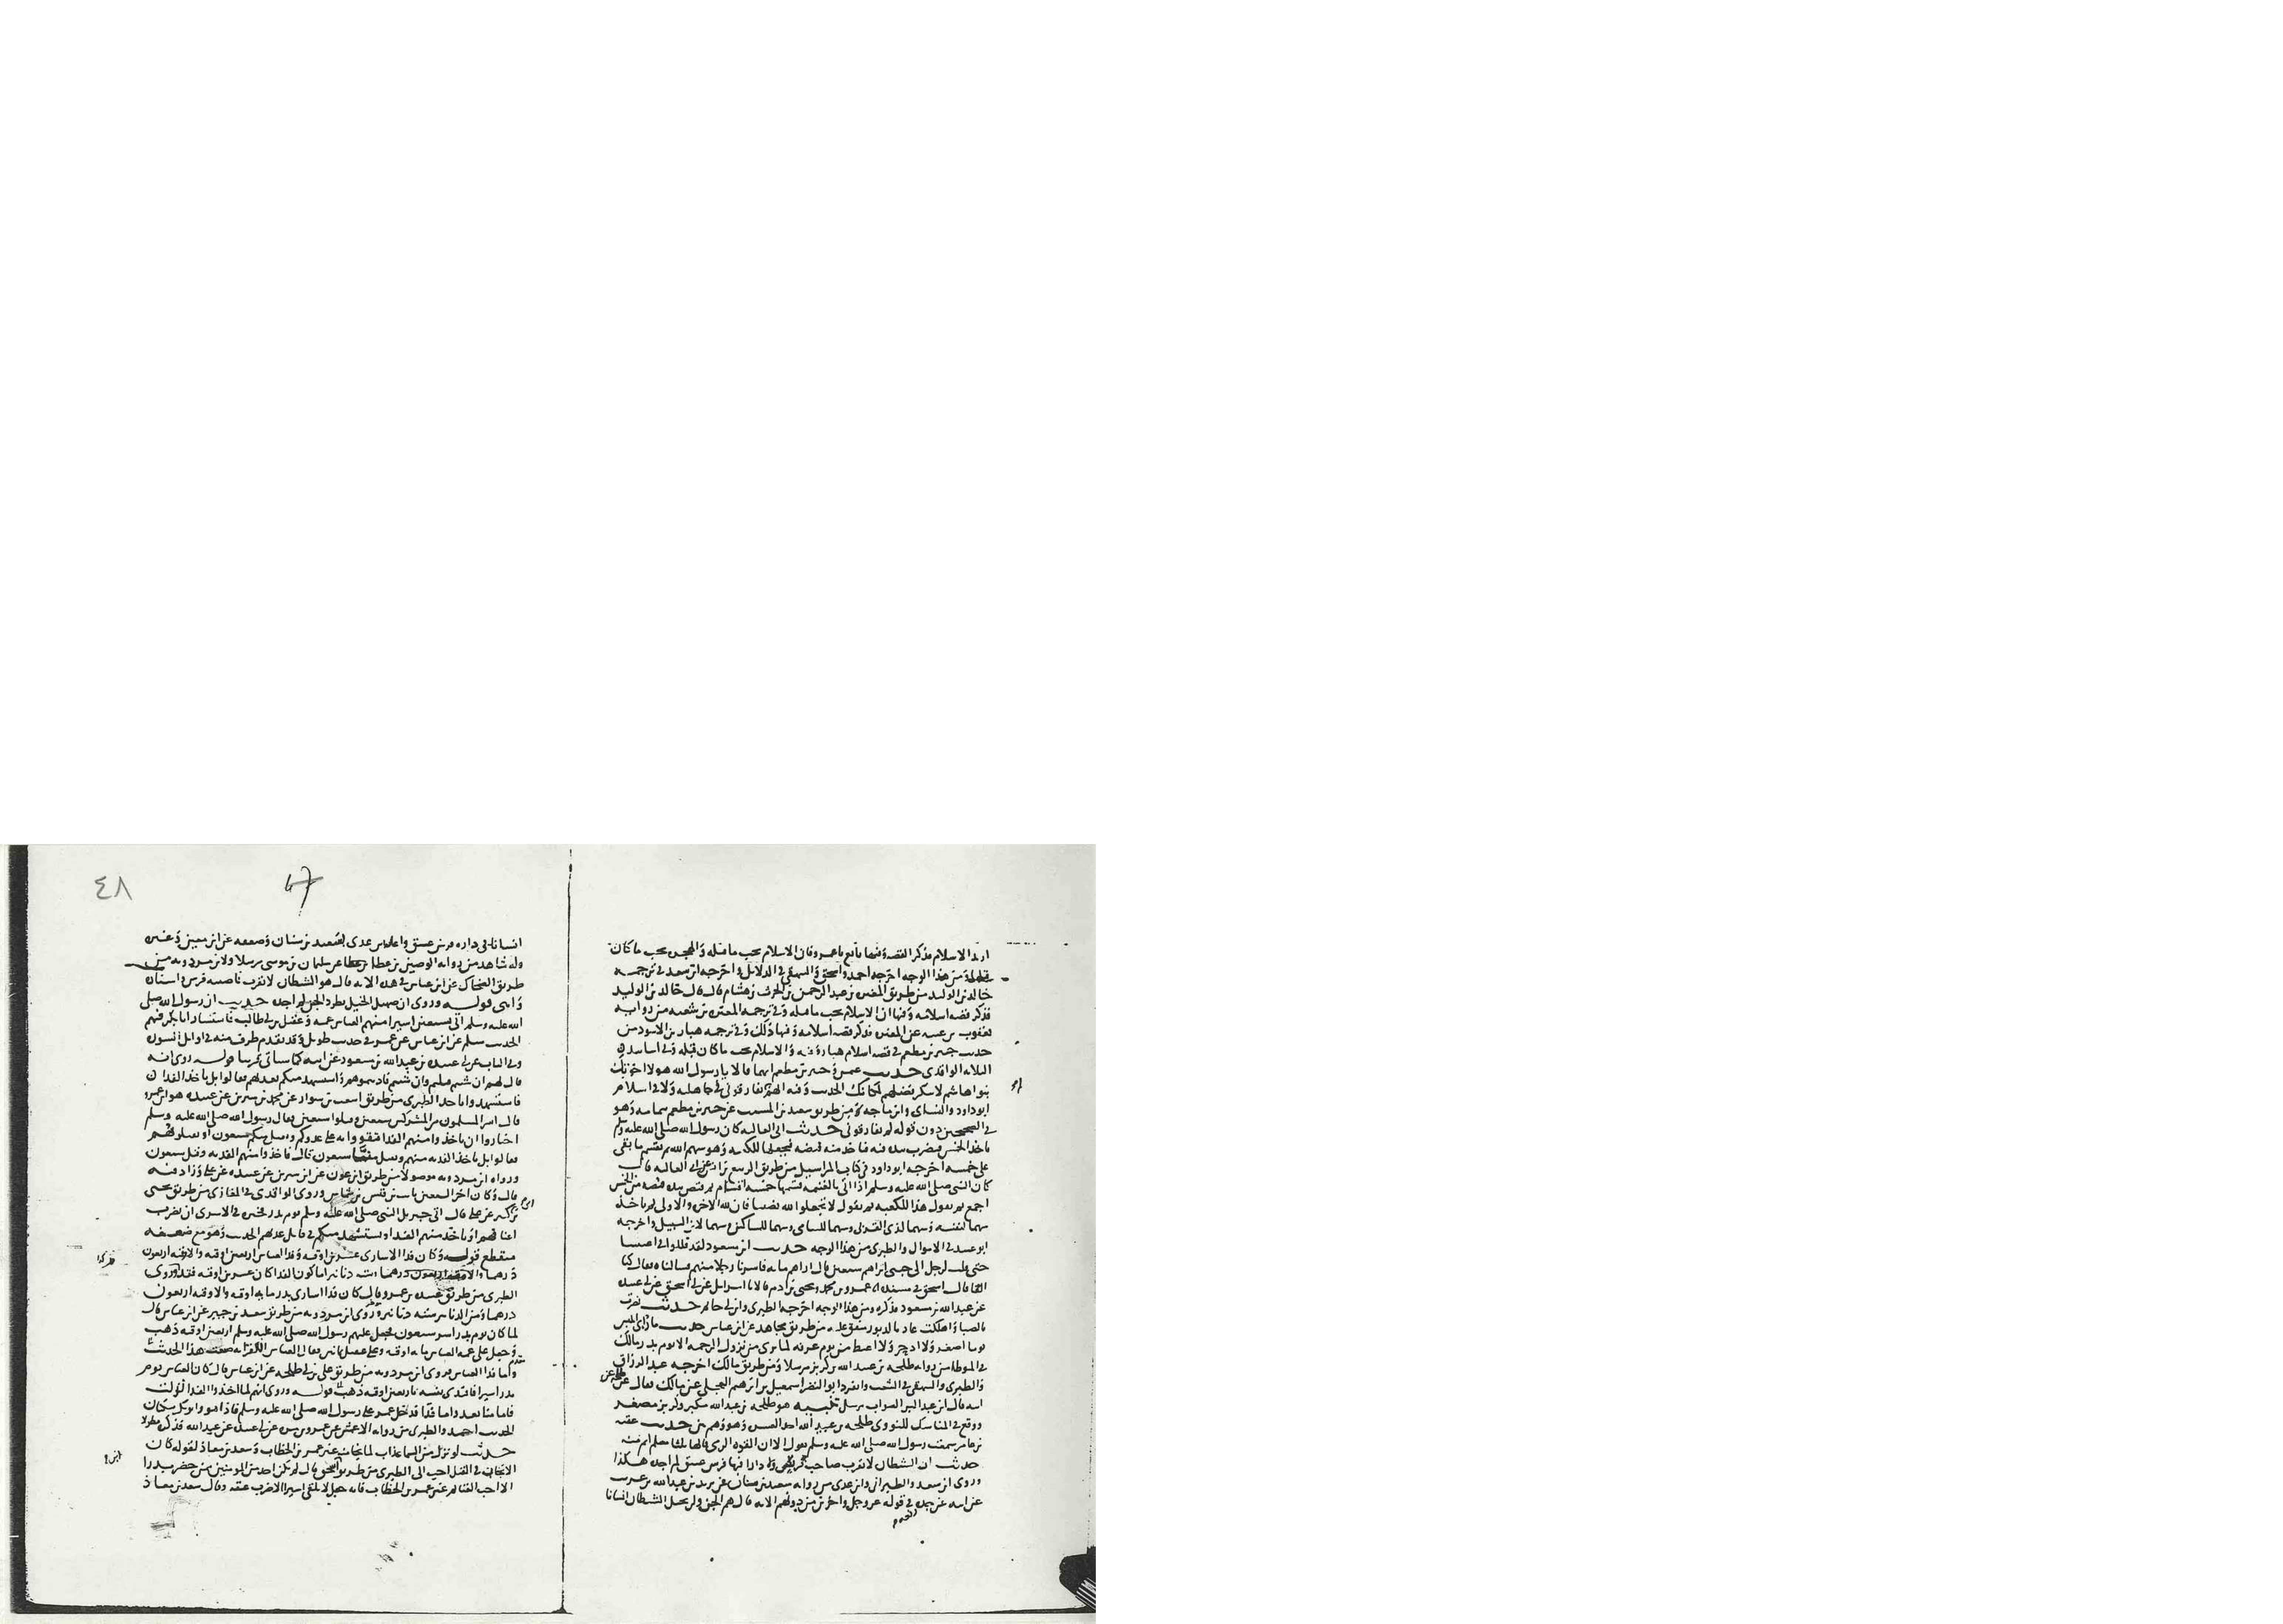 اريد الاسلام فذكر القصة وفيها بايع يا عمرو فان الاسلام يجب ما قبله والهجره تجب ما كان
قبلها ومن هذا الوجه اخرجه احمد واسحق والبيهقي في الدلايل واخرجه ابن سعد في ترجمه
خالد بن الوليد من طريق المغيره بن عبد الرحمن بن الحرث بن هشام قال قال خالد بن الوليد
فذكر قصه اسلامه وفيها ان الاسلام يجب ما قبله وفي ترجمه المغيره بن شعبه من روايه
يعقوب بن عتبه عن المغيره فذكر قصه اسلامه وفيها ذلك وفي ترجمه هبار بن الاسود من
حديث جبير بن مطعم في قصه اسلام هبار وفيه والاسلام يجب ما كان قبله وفي اسانيده
الثلاثه الواقدي حديث عمر وجبير بن مطعم انهما قالا يا رسول الله هولا اخوتك
بنوا هاشم لا ننكر فضلهم لمكانك الحديث وفيه انهم لم يفارقوني في جاهليه ولا في اسلام
ابو داود والنساي وابن ماجه من طريق سعيد بن المسيب عن جبير بن مطعم بتمامه وهو
في الصحيحين دون قوله لم يفارقوني حديث ابي العاليه كان رسول الله صلى الله عليه وسلم
ياخذ الخمس فيضرب بيده فيه فياخذ منه قبضه فيجعلها للكعبه وهو سهم الله ثم يقسم ما بقي
على خمسه اخرجه ابو داود في كتاب المراسيل من طريق الربيع بن انس عن ابي العاليه قال
كان النبي صلى الله عليه وسلم اذا اتي بالغنيمه قسمها خمسه اقسام ثم يقبض بيده قبضه من الخمس
اجمع ثم يقول هذا للكعبه ثم يقول لا تجعلوا لله نصيبا فان لله الاخره والاولى ثم ياخذ
سهما لنفسه وسهما لذي القربى وسهما لليتامى وسهما للمساكين وسهما لابن السبيل واخرجه
ابو عبيد في الاموال والطبري من هذا الوجه حديث ابن مسعود لقد قللوا في اعيننا
حتى قلت لرجل الى جنبي اتراهم سبعين قال اراهم مايه فاسرنا رجلا منهم فسالناه فقال كنا
الفا قال اسحق في مسنده عمرو بن محمد ويحيى بن ادم قالا نا اسرايل عن ابي اسحق عن ابي عبيده
عن عبد الله بن مسعود فذكره ومن هذا الوجه اخرجه الطبري وابن ابي حاتم حديث نصرت
بالصبا واهلكت عاد بالدبور متفق عليه من طريق مجاهد عن ابن عباس حديث ما راى ابليس
يوما اصغر ولا ادحر ولا اغيظ من يوم عرفه لما يرى من نزول الرحمه الا يوم بدر مالك
في الموطا من روايه طلحه بن عبيد الله بن كريز مرسلا ومن طريق مالك اخرجه عبد الرزاق
والطبري والبيهقي في الشعب وانفرد ابو النضر اسمعيل بن ابراهيم العجلي عن مالك فقال عن طلحه عن
ابيه قال ابن عبد البر الصواب مرسل تنبيه هو طلحه بن عبيد الله مكبر وكريز مصغر
ووقع في المناسك للنووي طلحه بن عبيد الله احد العشره وهو وهم حديث عقبه
بن عامر سمعت رسول الله صلى الله عليه وسلم يقول الا ان القوه الرمي قالها ثلثا مسلم اتم منه
حديث ان الشيطان لا يقرب صاحب فرس ولا دارا فيها فرس عتيق لم اجده هكذا
وروى ابن سعد والطبراني وابن عدي من روايه سعيد بن سنان عن يزيد بن عبد الله بن عريب
عن ابيه عن جده في قوله عز وجل واخرين من دونهم الايه قال هم الجن ولن يخبل الشيطان انسانا
٤٨
47
انسانا في داره فرس عتيق واعله ابن عدي بسعيد بن سنان وضعفه عن ابن معين وغيره
وله شاهد من روايه الوضين بن عطا عن سليمان بن موسى مرسلا ولابن مردويه من
طريق الضحاك عن ابن عباس في هذه الايه قال هو الشيطان لا يقرب ناصيه فرس واسناده
واهي قوله وروى ان صهيل الخيل يطرد الجن لم اجده حديث ان رسول الله صلى
الله عليه وسلم اتي بسبعين اسيرا منهم العباس عمه وعقيل بن ابي طالب فاستشار ابا بكر فيهم
الحديث مسلم عن ابن عباس عن عمر في حديث طويل وقد تقدم طرف منه في اوايل السوره
وفي الباب عن ابي عبيده بن عبد الله بن مسعود عن ابيه كما سياتي قريبا قوله روى انه
قال لهم ان شيتم قتلتم وان شيتم فاديتموهم واستشهد منكم بعدتهم فقالوا بل ناخذ الفدا
فاستشهدوا باحد الطبري من طريق اشعث بن سوار عن محمد بن سيرين عن عبيده هو ابن عمرو
قال اسر المسلمون من المشركين سبعين وقتلوا سبعين فقال رسول الله صلى الله عليه وسلم
اختاروا ان تاخذوا منهم الفدا فتقووا به على عدوكم ويقتل منكم سبعون او تقتلوهم
فقالوا بل ناخذ الفديه منهم ويقتل منا سبعون قال فاخذوا منهم الفديه وقتل سبعون
ورواه ابن مردويه موصولا من طريق ابن عون عن ابن سيرين عن عبيده عن علي وزاد فيه
قال وكان اخر السبعين ثابت بن قيس بن شماس وروى الواقدي في المغازي من طريق يحيى
بن ابي كثير عن علي قال اتى جبريل النبي صلى الله عليه وسلم يوم بدر فخيره في الاسرى ان يضرب
اعناقهم او ياخذ منهم الفدا ويستشهد منكم في قابل عدتهم الحديث وهو مع ضعفه
منقطع قوله وكان فدا الاسارى عشرين اوقيه وفدا العباس اربعين اوقيه والاوقيه اربعون
درهما وسته دنانير اما كون الفدا كان عشرين اوقيه فقد روى
الطبري من طريق عبيده بن عمرو قال كان فدا اسارى بدر مايه اوقيه والاوقيه اربعون
درهما ومن الدنانير سته دنانير وروى ابن مردويه من طريق سعيد بن جبير عن ابن عباس قال
لما كان يوم بدر اسر سبعون فجعل عليهم رسول الله صلى الله عليه وسلم اربعين اوقيه ذهب
وجعل على عمه العباس مايه اوقيه وعلى عقيل ثمانين فقال العباس
واما فدا العباس فروى ابن مردويه من طريق علي بن ابي طلحه عن ابن عباس قال كان العباس يوم
بدر اسيرا فافتدى نفسه باربعين اوقيه ذهب قوله وروى انهم لما اخذوا الفدا نزلت
فاما منا بعد واما فدا فدخل عمر على رسول الله صلى الله عليه وسلم فاذا هو وابو بكر يبكيان
الحديث احمد والطبري من روايه الاعمش عن عمرو بن مره عن ابي عبيده عن عبد الله فذكره مطولا
حديث لو نزل من السما عذاب لما نجا منه غير عمر بن الخطاب وسعد بن معاذ لقوله كان
الاثخان في القتل احب الي الطبري من طريق ابن اسحق قال لم يكن احد من المومنين ممن حضر بدرا
الا احب الغنايم غير عمر بن الخطاب فانه جعل لا يلقى اسيرا الا ضرب عنقه وقال سعد بن معاذ